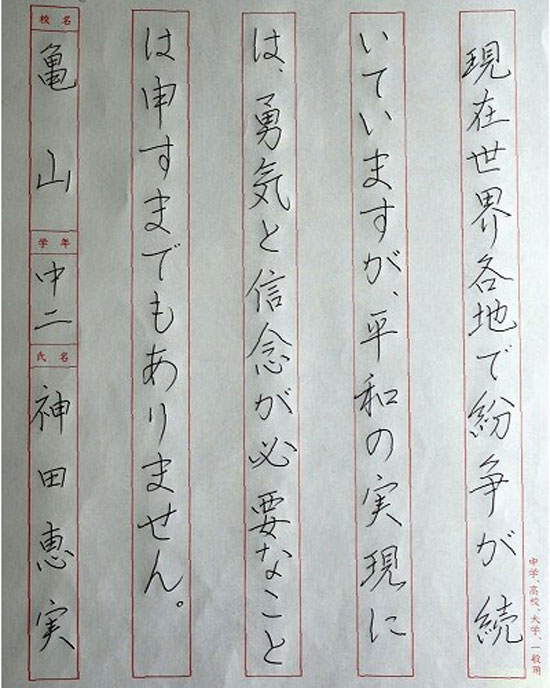 現在世界各地で紛争が続
いていますが、平和の実現に
は、勇気と信念が必要なこと
は申すまでもありません。
校名
亀山
学年
中二
氏名
神田恵実
中学、高校、大学、一般用